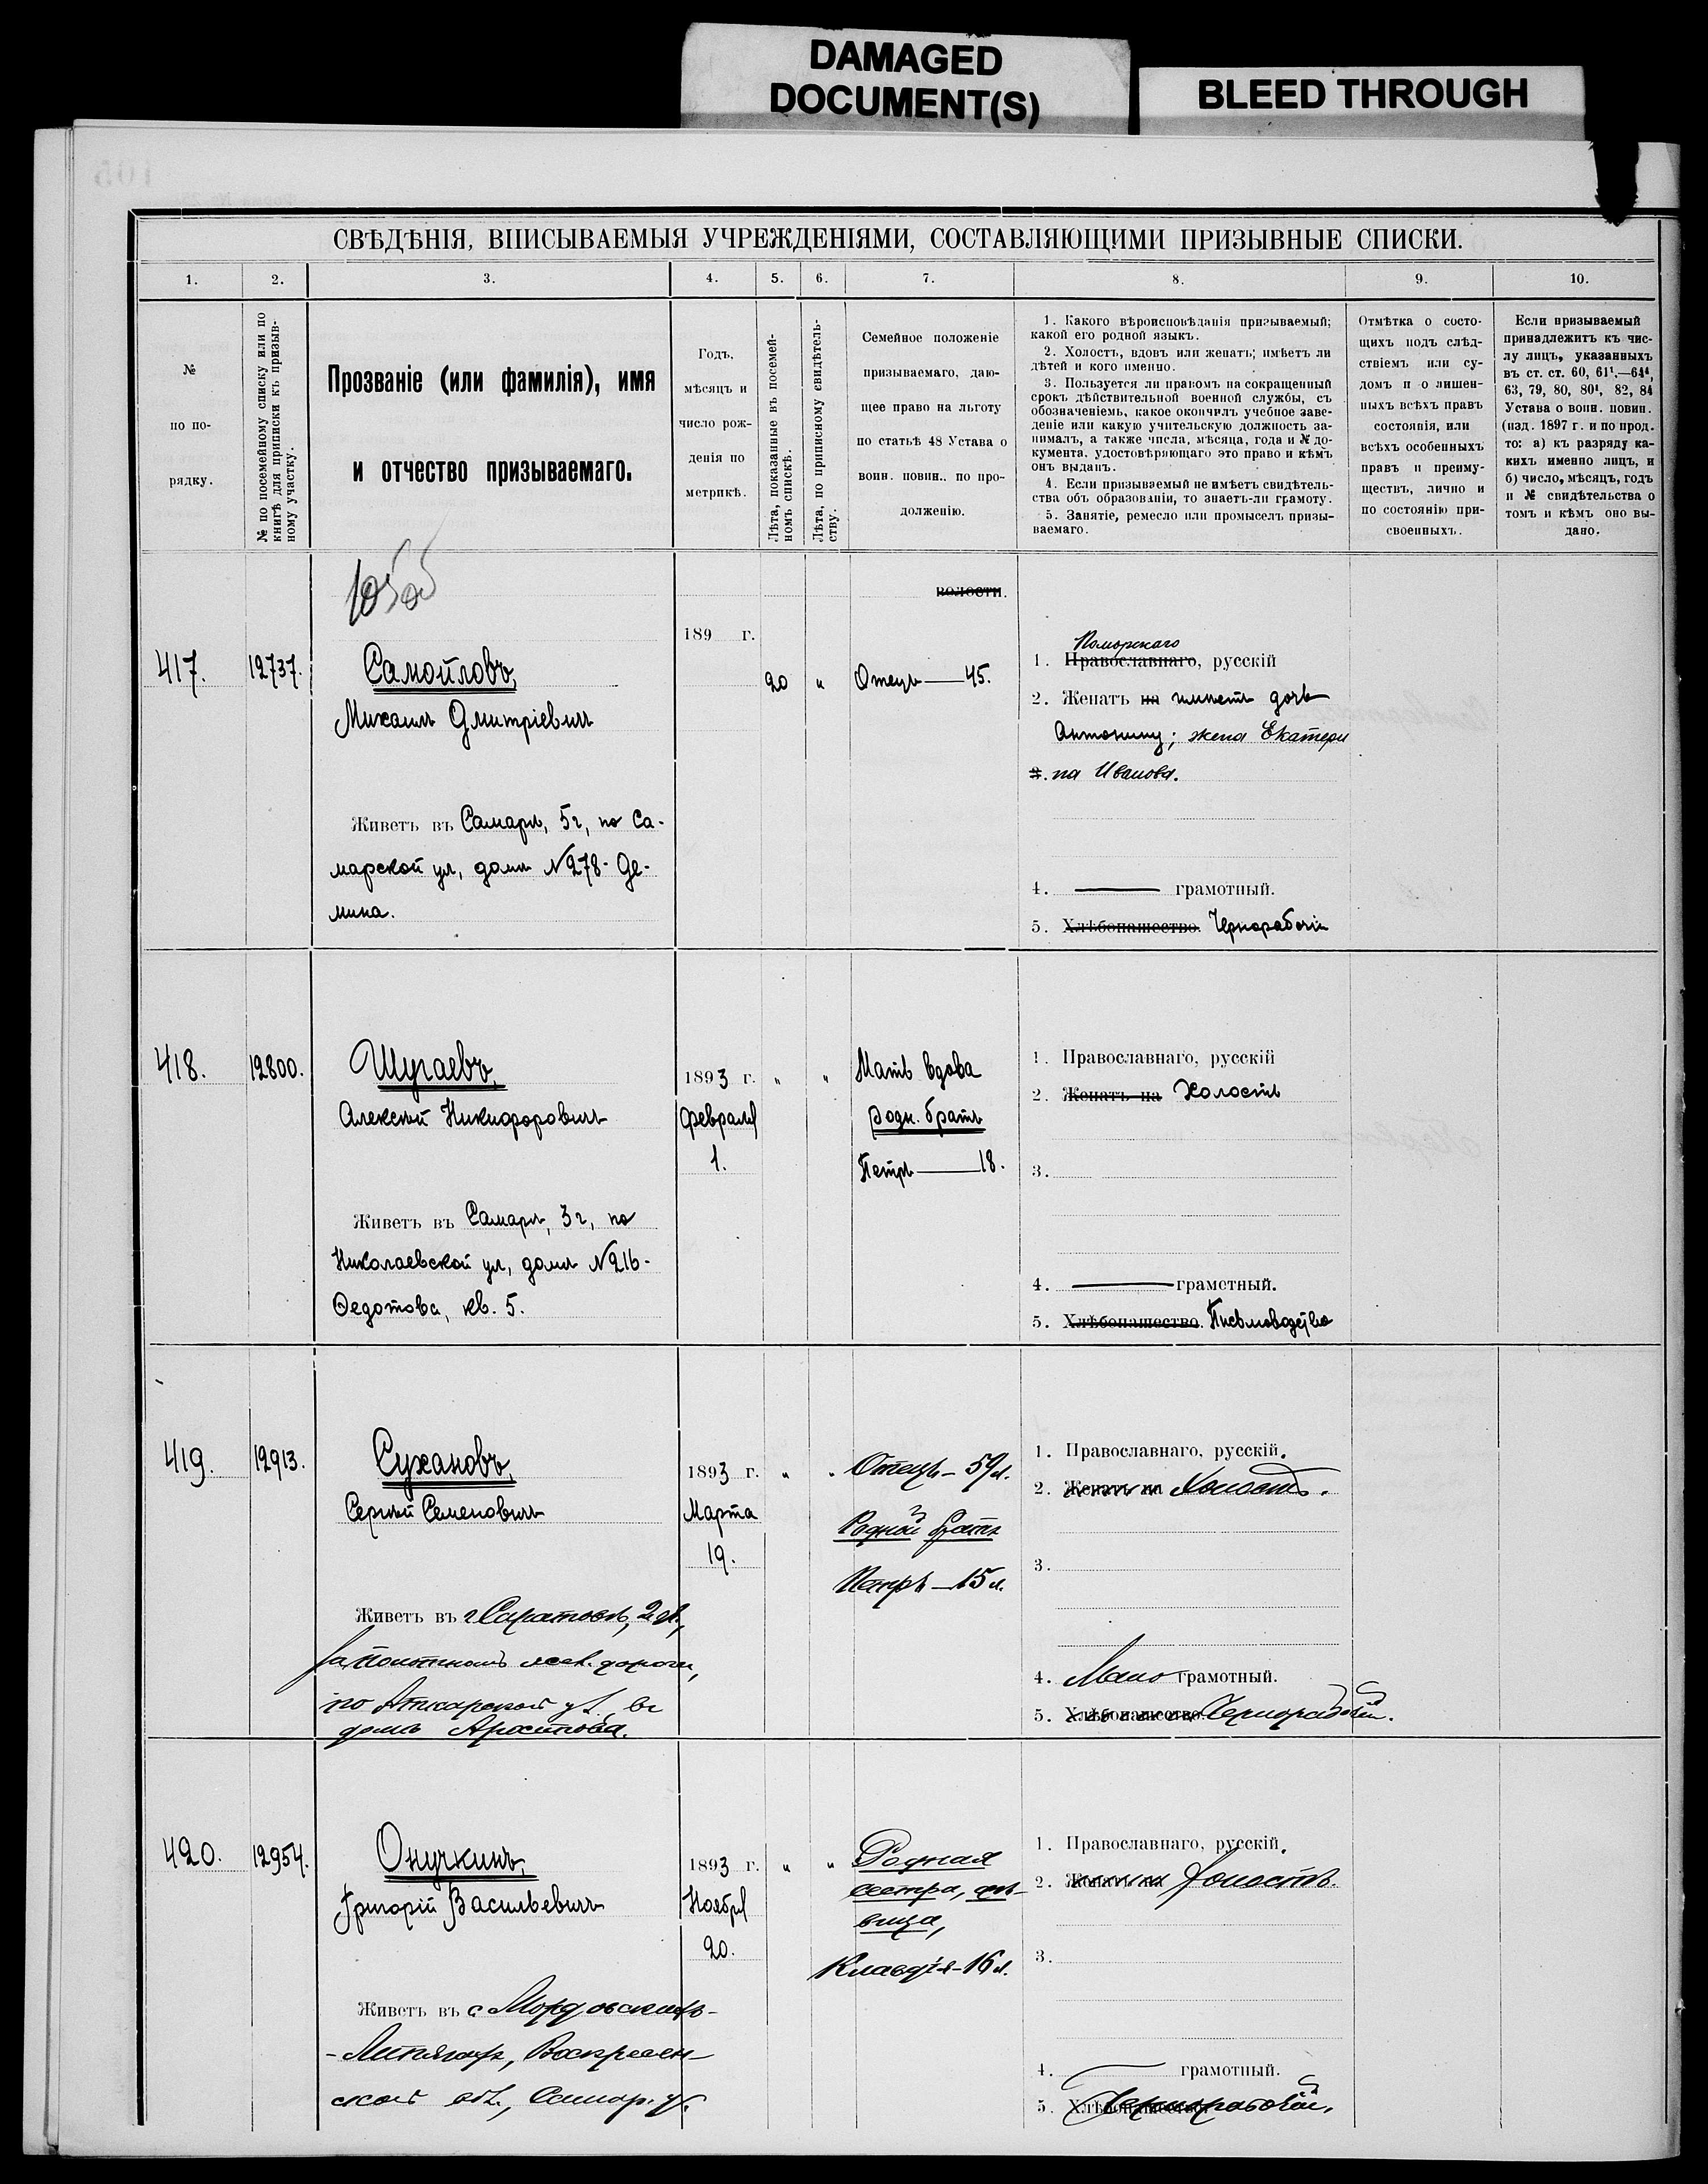 DAMAGED
DOCUMENT(S)
BLEED THROUGH
СВѢДѢНІЯ, ВПИСЫВАЕМЫЯ УЧРЕЖДЕНІЯМИ, СОСТАВЛЯЮЩИМИ ПРИЗЫВНЫЕ СПИСКИ.
1. 2. 3. 4. 5. 6. 7. 8. 9. 10.
№
по по-
рядку.
№ по посемейному списку или по
книгѣ для приписки къ призыв-
ному участку.
Прозваніе (или фамилія), имя
и отчество призываемаго.
Годъ,
мѣсяцъ и
число рож-
денія по
метрикѣ.
Лѣта, показанные въ посемей-
номъ спискѣ.
Лѣта, по приписному свидѣтель-
ству.
Семейное положеніе
призываемаго, даю-
щее право на льготу
по статьѣ 48 Устава о
воин. повин.. по про-
долженію.
1. Какого вѣроисповѣданія призываемый;
какой его родной языкъ.
2. Холостъ, вдовъ или женатъ; имѣетъ ли
дѣтей и кого именно.
3. Пользуется ли правомъ на сокращенный
срокъ дѣйствительной военной службы, съ
обозначеніемъ, какое окончилъ учебное заве-
деніе или какую учительскую должность за-
нималъ, а также числа, мѣсяца, года и № до-
кумента, удостовѣряющаго это право и кѣмъ
онъ выданъ.
4. Если призываемый не имѣетъ свидѣтель-
ства объ образованіи, то знаетъ-ли грамоту.
5. Занятіе, ремесло или промыселъ призы-
ваемаго.
Отмѣтка о состо-
щихъ подъ слѣд-
ствіемъ или су-
домъ и о лишен-
ныхъ всѣхъ правъ
состоянія, или
всѣхъ особенныхъ
правъ и преиму-
ществъ, лично и
по состоянію при-
своенныхъ.
Если призываемый
принадлежитъ къ чис-
лу лицъ, указанныхъ
въ ст. ст. 60, 61¹.—64⁴,
63, 79, 80, 80¹, 82, 84
Устава о воин. повин.
(изд. 1897 г. и по прод.
то: а) къ разряду ка-
кихъ именно лицъ, и
б) число, мѣсяцъ, годъ
и № свидѣтельства о
томъ и кѣмъ оно вы-
дано.
417.
12737.
Самойловъ,
Михаилъ Дмитріевичъ
Живетъ въ Самарѣ, 5ч, по Са-
марской ул, домъ №278- Де-
мина.
189 г.
20 "
волости.
Отецъ — 45.
Поморскаго
1. Православнаго, русскій
2. Женатъ на имѣетъ дочь
Антонину; жена Екатери
3. на Иванова.
4. — грамотный.
5. Хлѣбопашество. Чернорабочій
418.
12800.
Шугаевъ,
Алексѣй Никифоровичъ
Живетъ въ Самарѣ, 3ч, по
Николаевской ул, домъ №216-
Федотова, кв. 5.
1893 г. " "
Февраля
1.
Мать вдова
родн. братъ
Петръ — 18.
1. Православнаго, русскій
2. Женатъ на Холостъ
3.
4. — грамотный.
5. Хлѣбопашество. Письмоводство
419.
12913.
Сухановъ,
Сергѣй Семеновичъ
Живетъ въ г Саратовѣ, 2 ч.,
за полотномъ жел. дороги,
по Аткарской ул., въ
домѣ
1893 г. " "
Марта
19.
Отецъ — 59 л.
Родной братъ
Петръ — 15 л.
1. Православнаго, русскій.
2. Женатъ на Холостъ.
3.
4. Мало грамотный.
5. Хлѣбопашество. Чернорабочій.
420.
12954.
Онучкинъ,
Григорій Васильевичъ
Живетъ въ с Мордовскихъ-
-Липягахъ, Воскресен-
ской вол., Самар. у.
1893 г. " "
Ноября
20.
Родная
сестра, дѣ-
вица,
Клавдія-16 л.
1. Православнаго, русскій.
2. Женатъ на Холостъ.
3.
4. — грамотный.
5. Хлѣбопашество. Чернорабочій.